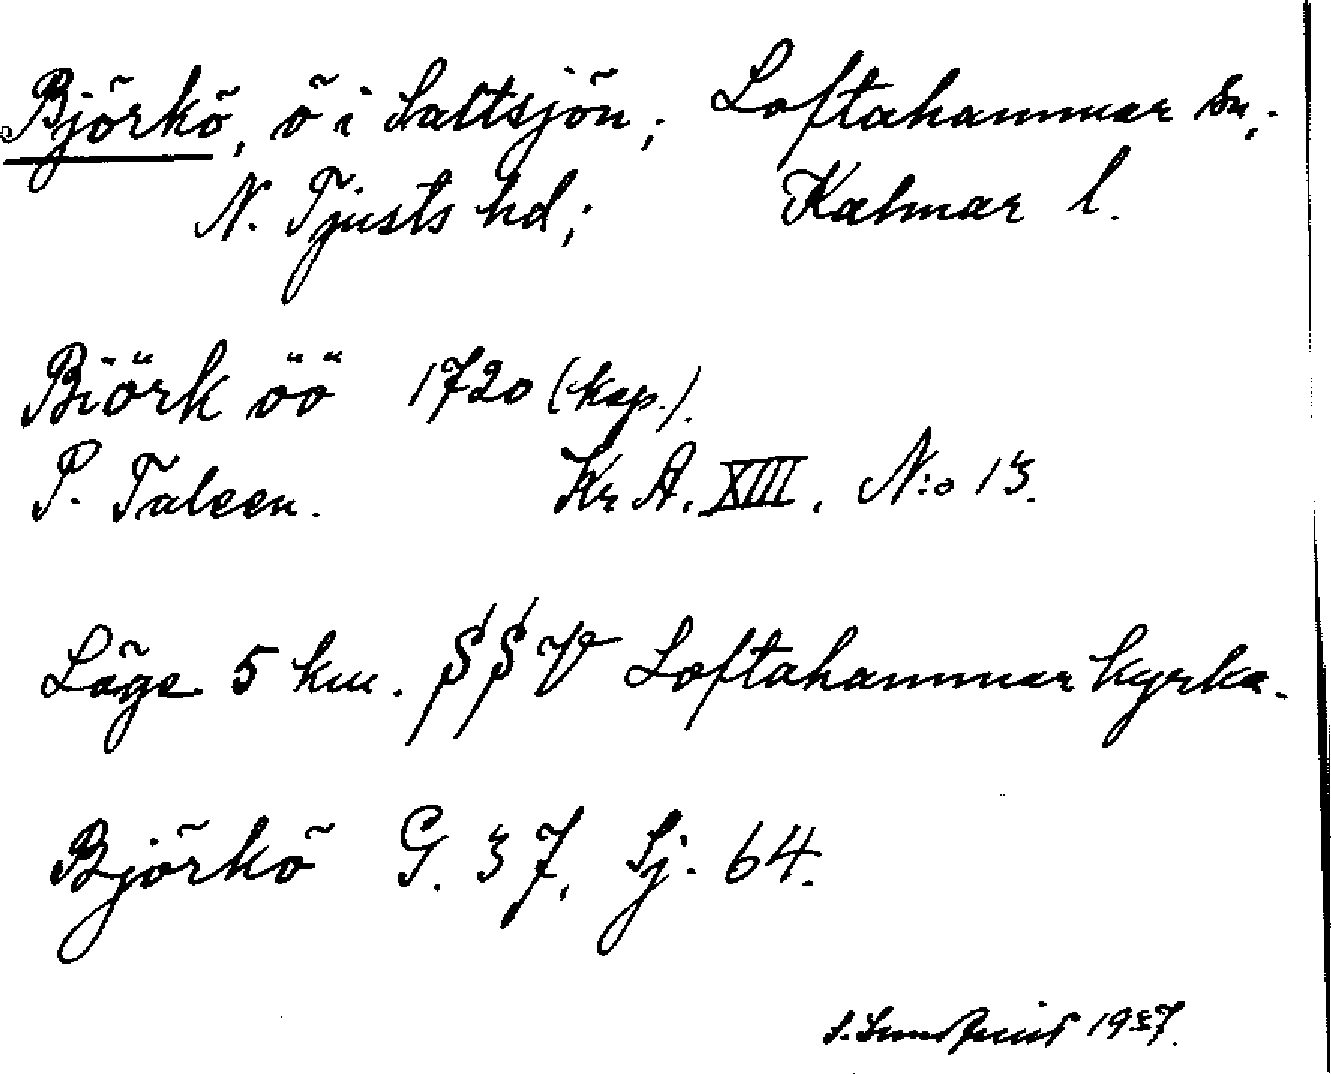 Björkö, ö i Saltsjön; Loftahammar sn;
N. Tjusts hd; Kalmar l.
Biörk öö 1720 (kop.).
P. Taleen. Kr A. XIII. N:o 13.
Läge 5 km. SSV Loftahammar kyrka.
Björkö G. 37, Sj. 64.
S. Sundquist 1937.